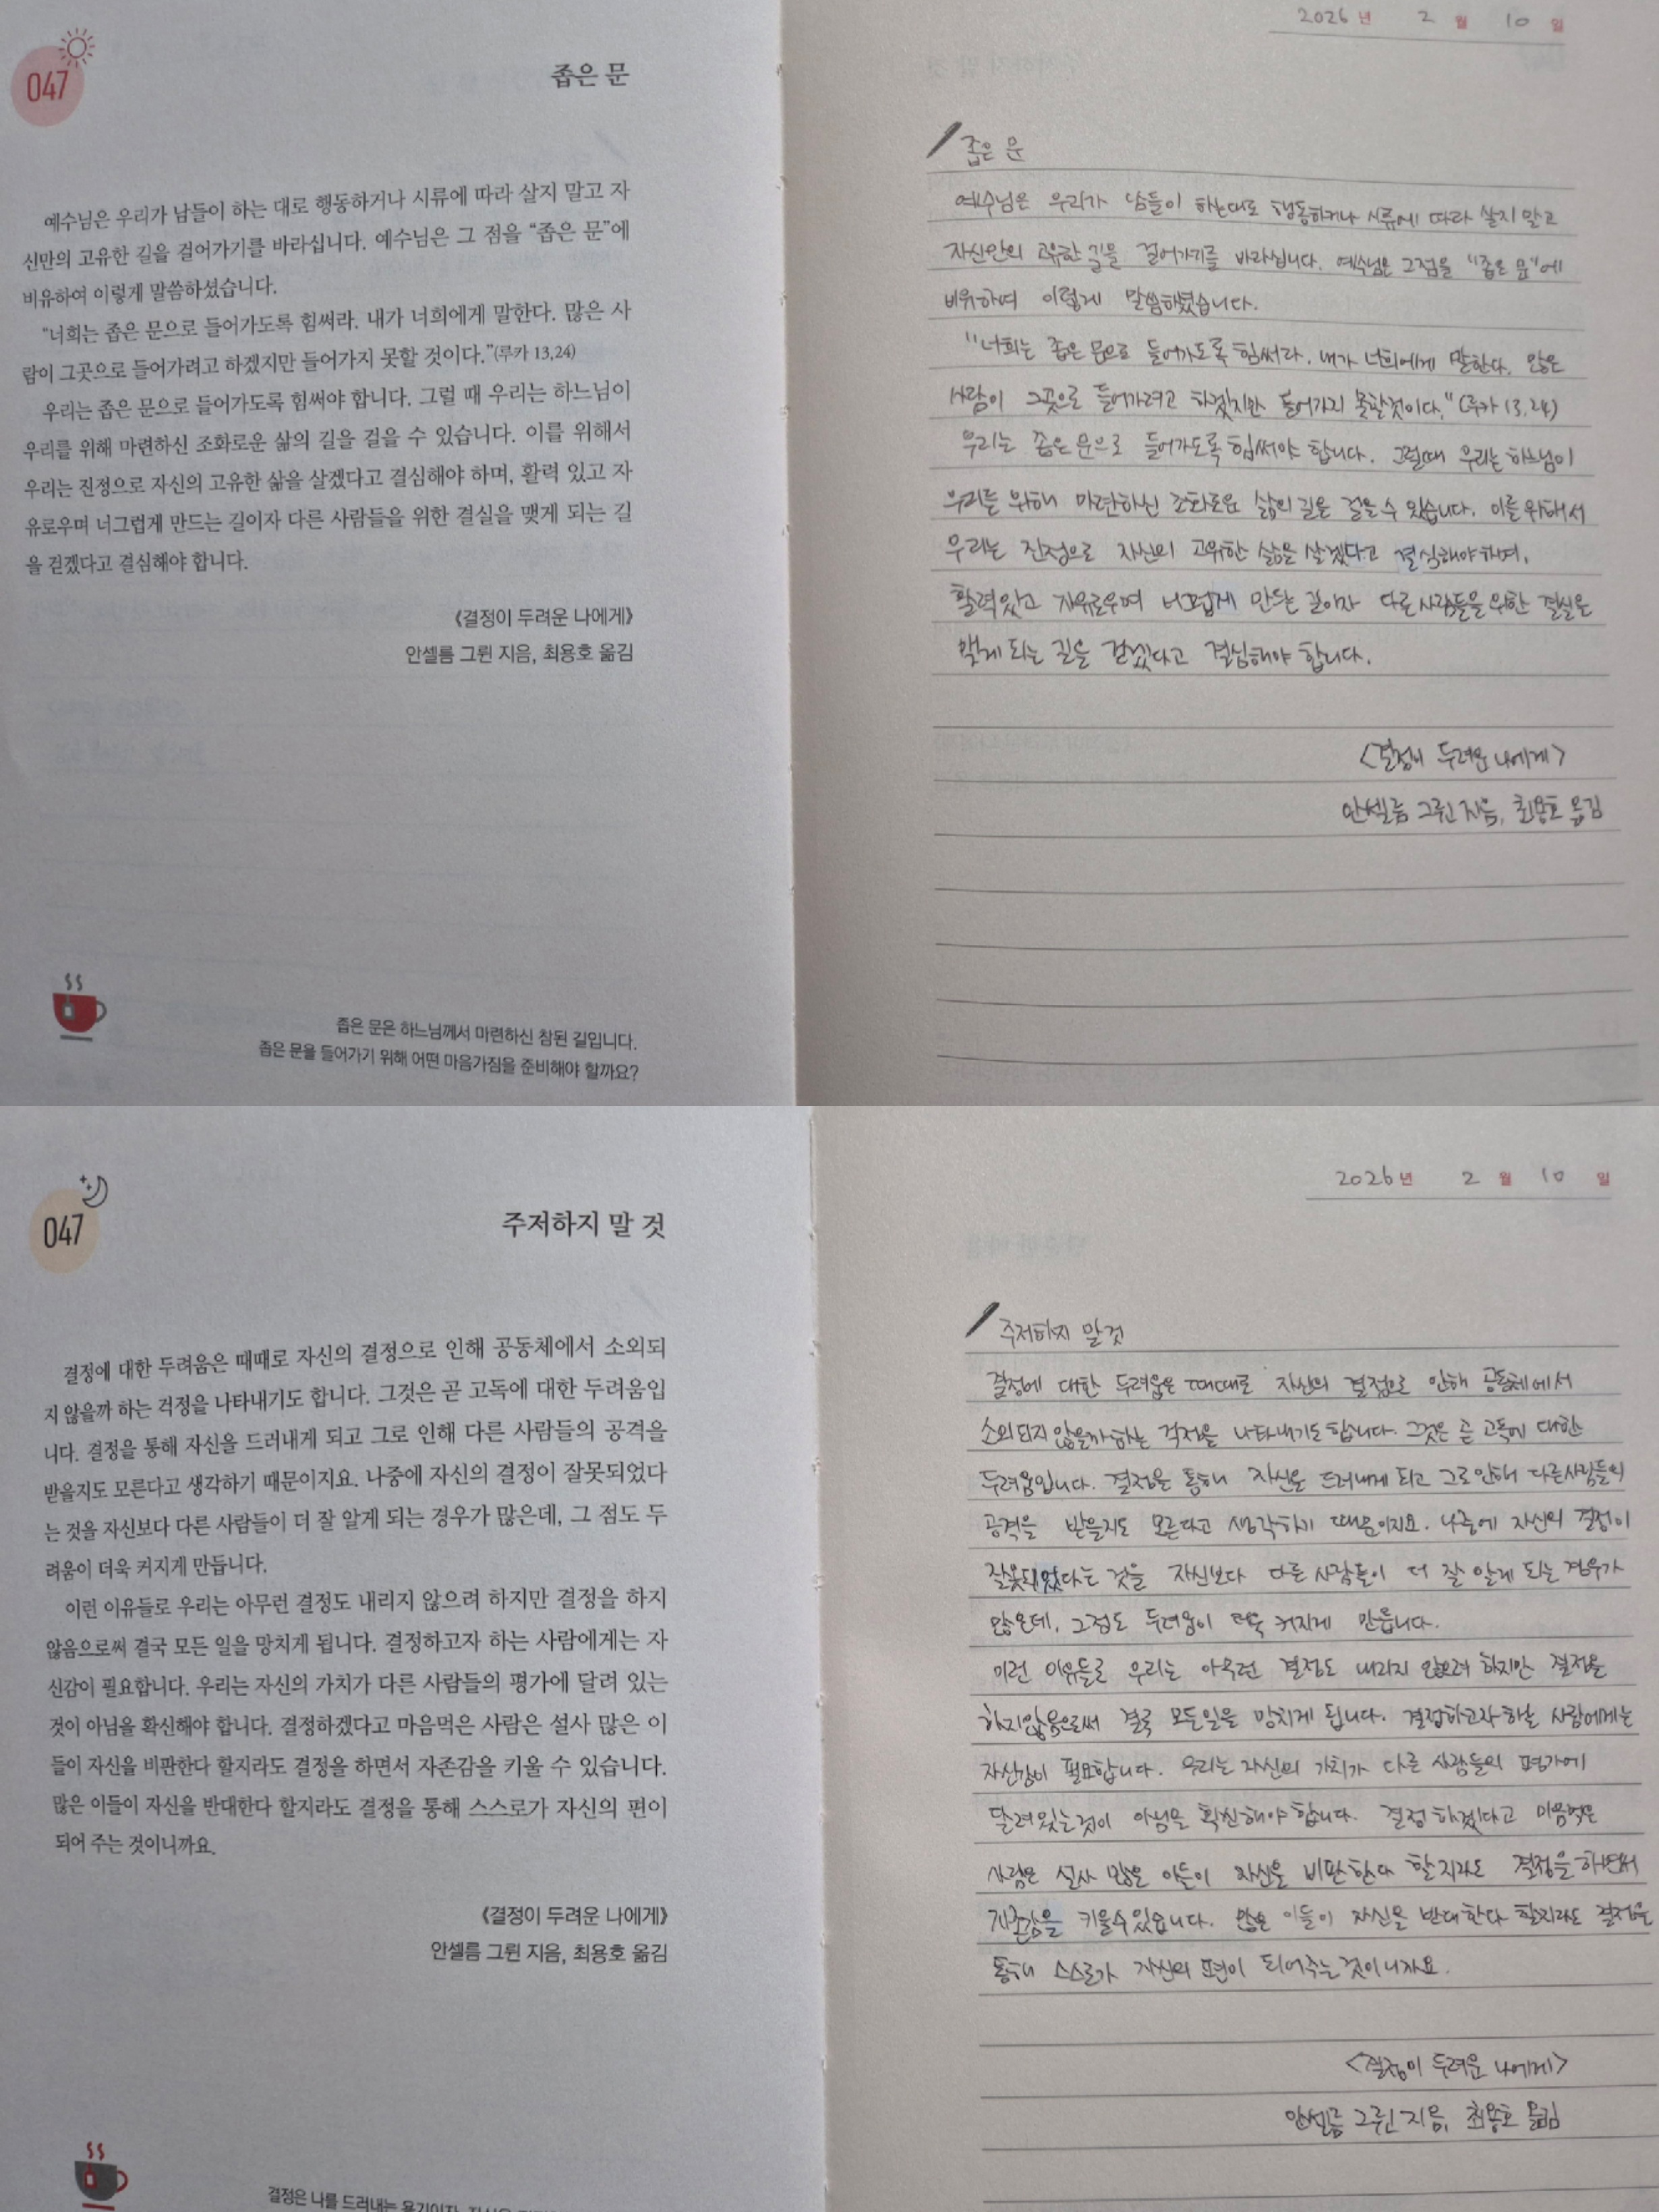 047
좁은 문
예수님은 우리가 남들이 하는 대로 행동하거나 시류에 따라 살지 말고 자
신만의 고유한 길을 걸어가기를 바라십니다. 예수님은 그 점을 “좁은 문”에
비유하여 이렇게 말씀하셨습니다.
“너희는 좁은 문으로 들어가도록 힘써라. 내가 너희에게 말한다. 많은 사
람이 그곳으로 들어가려고 하겠지만 들어가지 못할 것이다.”(루카 13,24)
우리는 좁은 문으로 들어가도록 힘써야 합니다. 그럴 때 우리는 하느님이
우리를 위해 마련하신 조화로운 삶의 길을 걸을 수 있습니다. 이를 위해서
우리는 진정으로 자신의 고유한 삶을 살겠다고 결심해야 하며, 활력 있고 자
유로우며 너그럽게 만드는 길이자 다른 사람들을 위한 결실을 맺게 되는 길
을 걷겠다고 결심해야 합니다.
《결정이 두려운 나에게》
안셀름 그륀 지음, 최용호 옮김
좁은 문은 하느님께서 마련하신 참된 길입니다.
좁은 문을 들어가기 위해 어떤 마음가짐을 준비해야 할까요?
2026년 2월 10일
좁은 문
예수님은 우리가 남들이 하는대로 행동하거나 시류에 따라 살지 말고
자신만의 고유한 길을 걸어가기를 바라십니다. 예수님은 그점을 "좁은 문"에
비유하여 이렇게 말씀하셨습니다.
"너희는 좁은 문으로 들어가도록 힘써라. 내가 너희에게 말한다. 많은
사람이 그곳으로 들어가려고 하겠지만 들어가지 못할것이다."(루카 13,24)
우리는 좁은 문으로 들어가도록 힘써야 합니다. 그럴때 우리는 하느님이
우리를 위해 마련하신 조화로운 삶의 길을 걸을 수 있습니다. 이를 위해서
우리는 진정으로 자신의 고유한 삶을 살겠다고 결심해야하며,
활력있고 자유로우며 너그럽게 만드는 길이자 다른 사람들을 위한 결실을
맺게 되는 길을 걷겠다고 결심해야 합니다.
<결정이 두려운 나에게>
안셀름 그륀 지음, 최용호 옮김
047
주저하지 말 것
결정에 대한 두려움은 때때로 자신의 결정으로 인해 공동체에서 소외되
지 않을까 하는 걱정을 나타내기도 합니다. 그것은 곧 고독에 대한 두려움입
니다. 결정을 통해 자신을 드러내게 되고 그로 인해 다른 사람들의 공격을
받을지도 모른다고 생각하기 때문이지요. 나중에 자신의 결정이 잘못되었다
는 것을 자신보다 다른 사람들이 더 잘 알게 되는 경우가 많은데, 그 점도 두
려움이 더욱 커지게 만듭니다.
이런 이유들로 우리는 아무런 결정도 내리지 않으려 하지만 결정을 하지
않음으로써 결국 모든 일을 망치게 됩니다. 결정하고자 하는 사람에게는 자
신감이 필요합니다. 우리는 자신의 가치가 다른 사람들의 평가에 달려 있는
것이 아님을 확신해야 합니다. 결정하겠다고 마음먹은 사람은 설사 많은 이
들이 자신을 비판한다 할지라도 결정을 하면서 자존감을 키울 수 있습니다.
많은 이들이 자신을 반대한다 할지라도 결정을 통해 스스로가 자신의 편이
되어 주는 것이니까요.
《결정이 두려운 나에게》
안셀름 그륀 지음, 최용호 옮김
결정은 나를 드러내는 용기이자
2026년 2월 10일
주저하지 말 것
결정에 대한 두려움은 때때로 자신의 결정으로 인해 공동체에서
소외되지 않을까하는 걱정을 나타내기도 합니다. 그것은 곧 고독에 대한
두려움입니다. 결정을 통해 자신을 드러내게 되고 그로인해 다른사람들의
공격을 받을지도 모른다고 생각하기 때문이지요. 나중에 자신의 결정이
잘못되었다는 것을 자신보다 다른 사람들이 더 잘 알게 되는 경우가
많은데, 그점도 두려움이 더욱 커지게 만듭니다.
이런 이유들로 우리는 아무런 결정도 내리지 않으려 하지만 결정을
하지않음으로써 결국 모든일을 망치게 됩니다. 결정하고자 하는 사람에게는
자신감이 필요합니다. 우리는 자신의 가치가 다른 사람들의 평가에
달려있는것이 아님을 확신해야 합니다. 결정하겠다고 마음먹은
사람은 설사 많은 이들이 자신을 비판한다 할지라도 결정을 하면서
자존감을 키울수있습니다. 많은 이들이 자신을 반대한다 할지라도 결정을
통해 스스로가 자신의 편이 되어주는것이니까요.
<결정이 두려운 나에게>
안셀름 그륀 지음, 최용호 옮김